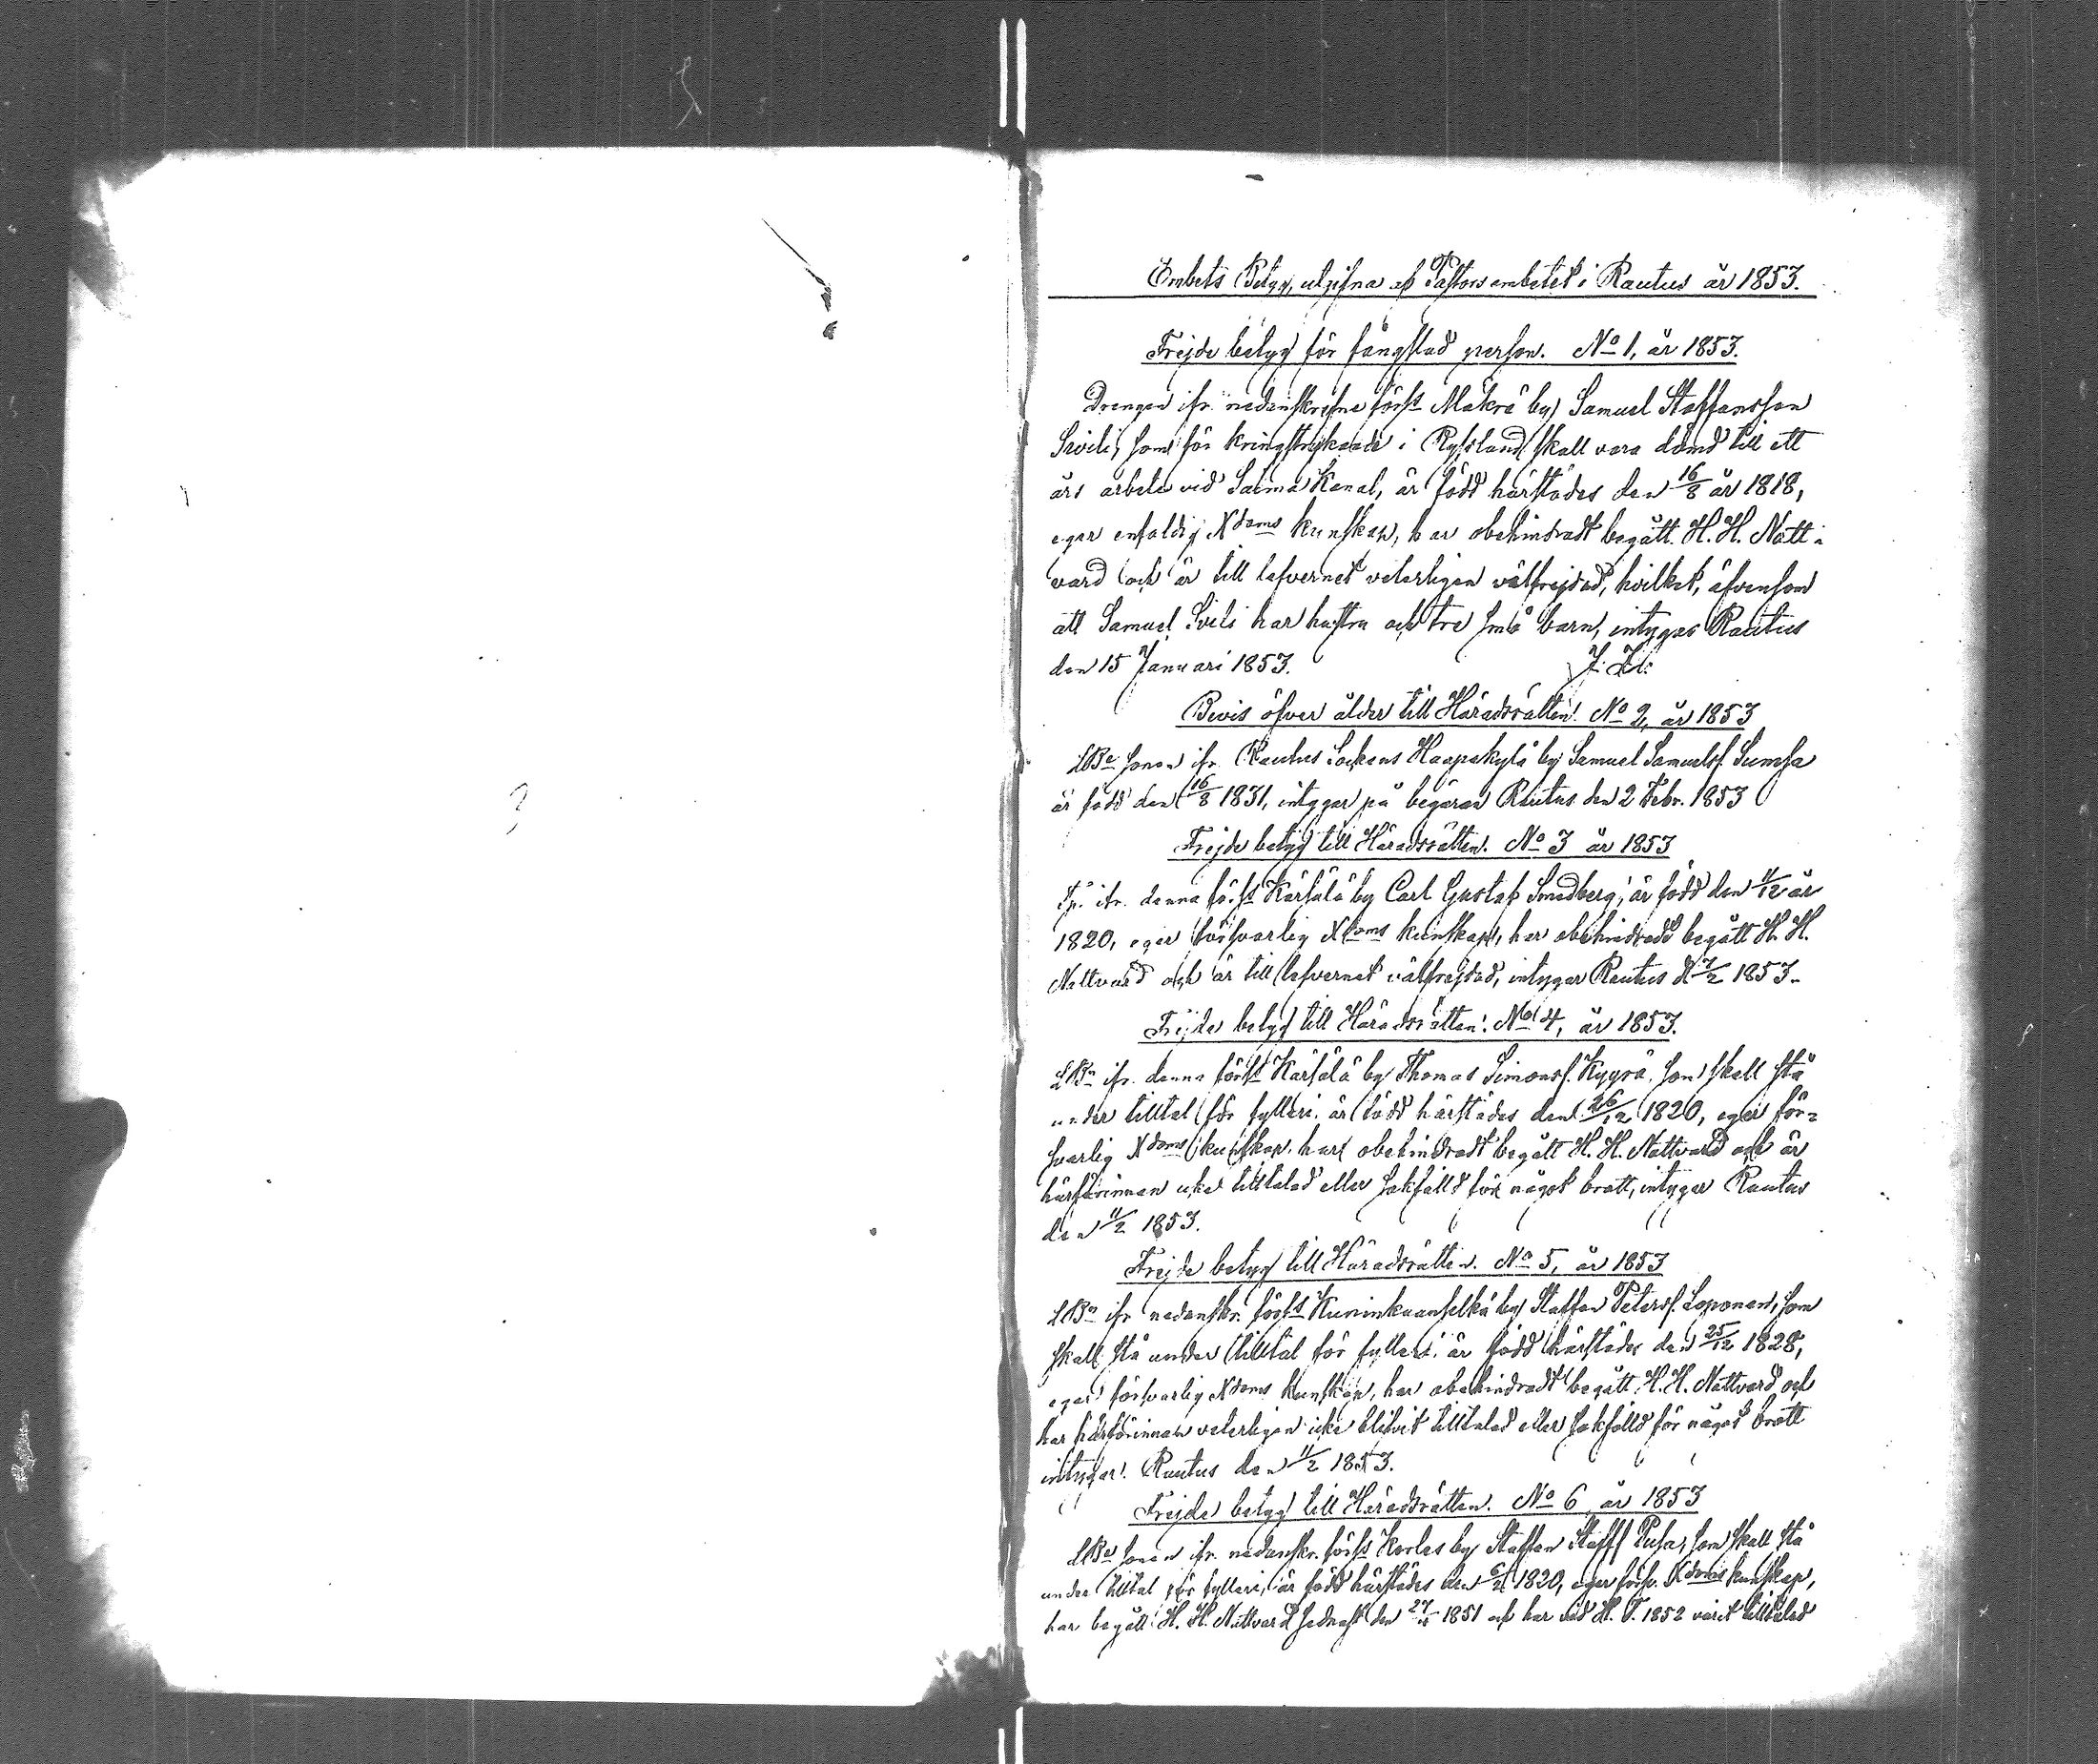 Embets Betyg, utgifna af Pastorsembetet i Rautus år 1853.
Frejde betyg för fängslad person. No 1, år 1853.
Drengen ifr. nedanskrefne förs:s Mäkrä by Samuel Staffansson
Siveli, som för kringstrykande i Ryssland skall vara dömd till ett
års arbete vid Saima Kanal, är född härstädes den 16/8 år 1818,
eger enfaldig Xdoms kunskap, har obehindradt begått H. H. Natt-
vard och är till lefvernet veterligen välfrejdad, hvilket, äfvensom
att Samuel har hustru och tre små barn, intygas Rautus
den 15 Januari 1853.
Bevis öfver ålder till Häradsrätten. No 2, år 1853
LBe sonen ifr. Rautus Sockens Haapakylä by Samuel Samuelss.
är född den 16/8 1831, intygar på begäran Rautus den 2 Febr. 1853
Frejde betyg till Häradsrätten. No 3 år 1853
ifr. denna förs:s Kärsälä by Carl Gustaf Smedberg, är född den 11/12 år
1820, eger försvarlig Xdoms kunskap, har obehindradt begått H. H.
Nattvard och är till lefvernet välfrejdad, intygar Rautus d. 7/2 1853.
Frejde betyg till Häradsrätten. No 4, år 1853.
LBn ifr. denna förs:s Kärsälä by Thomas Simonss. Kyyrä, som skall stå
under tilltal för fylleri, är född härstädes den 26/12 1820, eger för-
svarlig Xdoms kunskap, har obehindradt begått H. H. Nattvard och är
härförinnan icke tilltalad eller sakfälld för något brott, intygar Rautus
den 11/2 1853.
Frejde betyg till Häradsrätten. No 5, år 1853
LBn ifr. nedanskr. förs:s Kuninkaanselkä by Staffan Peterss. Loponen, som
skall stå under tilltal för fylleri, är född härstädes den 25/12 1828,
eger försvarlig Xdoms kunskap, har obehindradt begått H. H. Nattvard och
har härförinnan veterligen icke blifvit tilltalad eller sakfälld för något brott
intygar. Rautus den 11/2 1853.
Frejde betyg till Häradsrätten. No 6 år 1853
LBe sonen ifr. nedanskr. förs:s Korles by Staffan Staffs. Pusa, som skall stå
under tilltal för fylleri, är född härstädes den 1820, eger försv. Xdoms kunskap,
har begått H. H. Nattvard sednast den 1851 och har vid H. T. 1852 varit tilltalad